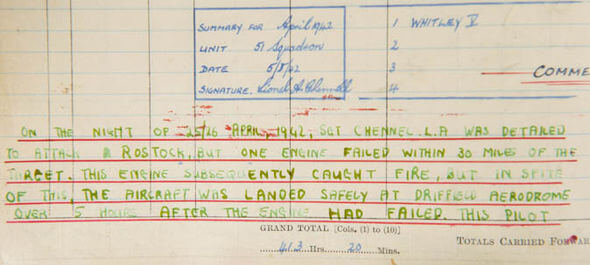 SUMMARY FOR April 1942
UNIT 51 Squadron
DATE 5/5/42
SIGNATURE. Lionel A. Chennell
1 WHITLEY V
2
3
4
COMME
ON THE NIGHT OF 25/26 APRIL 1942, SGT CHENNEL. L.A WAS DETAILED
TO ATTACK ROSTOCK, BUT ONE ENGINE FAILED WITHIN 30 MILES OF THE
TARGET. THIS ENGINE SUBSEQUENTLY CAUGHT FIRE, BUT IN SPITE
OF THIS, THE AIRCRAFT WAS LANDED SAFELY AT DRIFFIELD AERODROME
OVER 5 HOURS AFTER THE ENGINE HAD FAILED. THIS PILOT
GRAND TOTAL [Cols. (1) to (10)]
413 Hrs. 20 Mins.
TOTALS CARRIED FORWAR